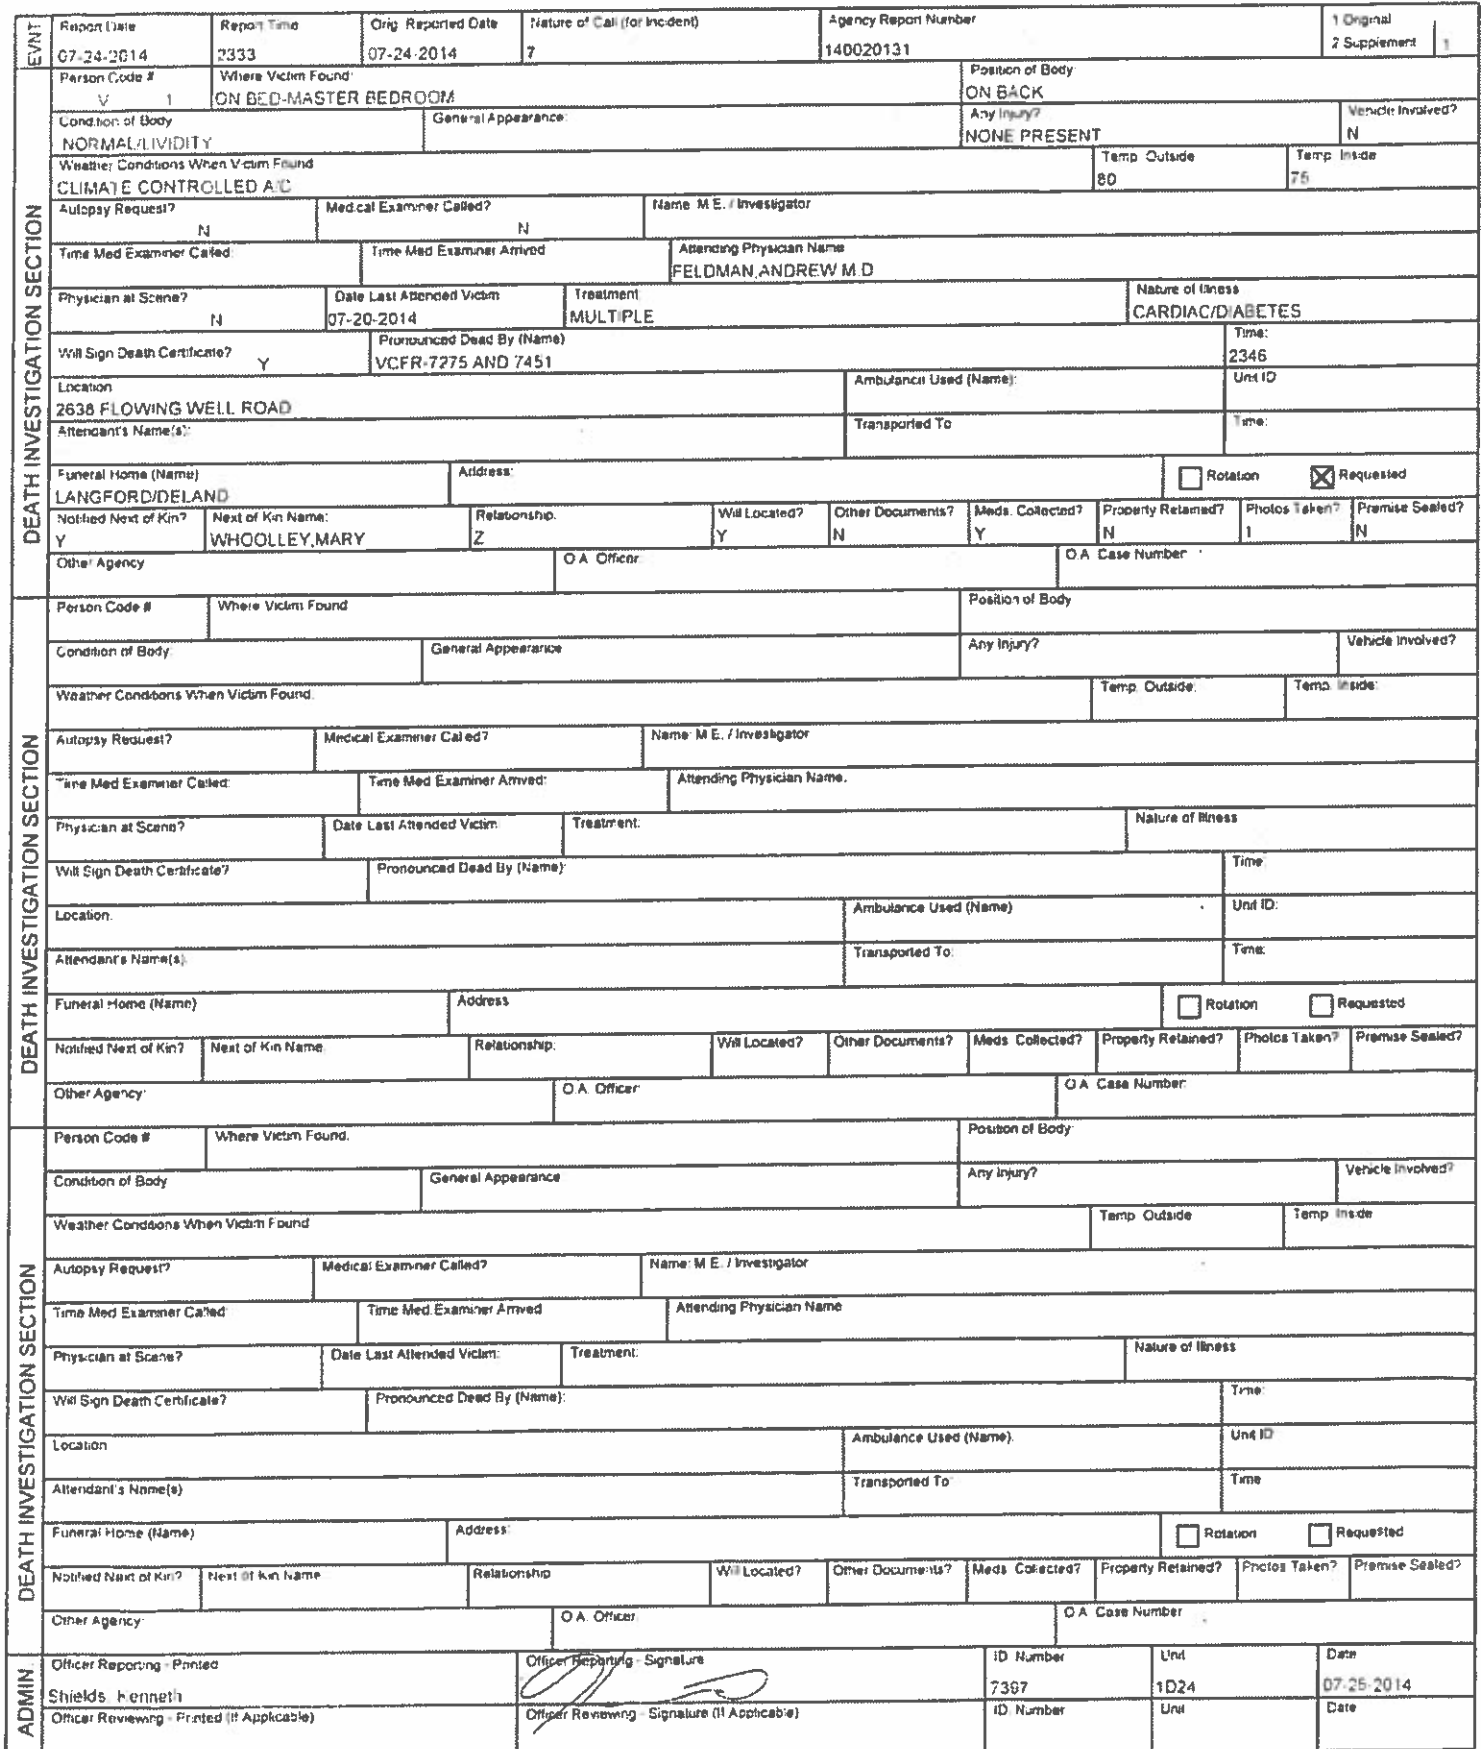 EVNT
Report Date Report Time Orig. Reported Date Nature of Call (for Incident) Agency Report Number 1 Original
07-24-2014 2333 07-24-2014 7 140020131 2 Supplement 1
DEATH INVESTIGATION SECTION
Person Code # Where Victim Found: Position of Body
V 1 ON BED-MASTER BEDROOM ON BACK
Condition of Body General Appearance: Any Injury? Vehicle Involved?
NORMAL/LIVIDITY NONE PRESENT N
Weather Conditions When Victim Found Temp Outside Temp Inside
CLIMATE CONTROLLED A/C 80 75
Autopsy Request? Medical Examiner Called? Name M.E. / Investigator
N N
Time Med Examiner Called: Time Med Examiner Arrived Attending Physician Name
FELDMAN,ANDREW M.D
Physician at Scene? Date Last Attended Victim Treatment Nature of Illness
N 07-20-2014 MULTIPLE CARDIAC/DIABETES
Will Sign Death Certificate? Pronounced Dead By (Name) Time:
Y VCFR-7275 AND 7451 2346
Location Ambulance Used (Name): Unit ID
2638 FLOWING WELL ROAD
Attendant's Name(s): Transported To Time:
Funeral Home (Name) Address: Rotation Requested
LANGFORD/DELAND
Notified Next of Kin? Next of Kin Name: Relationship: Will Located? Other Documents? Meds. Collected? Property Retained? Photos Taken? Premise Sealed?
Y WHOOLLEY,MARY Z Y N Y N 1 N
Other Agency O.A. Officer: O.A. Case Number
DEATH INVESTIGATION SECTION
Person Code # Where Victim Found Position of Body
Condition of Body: General Appearance Any Injury? Vehicle Involved?
Weather Conditions When Victim Found: Temp. Outside: Temp. Inside:
Autopsy Request? Medical Examiner Called? Name: M.E. / Investigator
Time Med Examiner Called: Time Med Examiner Arrived: Attending Physician Name.
Physician at Scene? Date Last Attended Victim: Treatment: Nature of Illness
Will Sign Death Certificate? Pronounced Dead By (Name): Time
Location. Ambulance Used (Name) Unit ID:
Attendant's Name(s): Transported To: Time:
Funeral Home (Name) Address Rotation Requested
Notified Next of Kin? Next of Kin Name Relationship: Will Located? Other Documents? Meds. Collected? Property Retained? Photos Taken? Premise Sealed?
Other Agency: O.A. Officer: O.A. Case Number:
DEATH INVESTIGATION SECTION
Person Code # Where Victim Found. Position of Body
Condition of Body General Appearance Any Injury? Vehicle Involved?
Weather Conditions When Victim Found Temp Outside Temp Inside
Autopsy Request? Medical Examiner Called? Name: M.E. / Investigator
Time Med Examiner Called: Time Med. Examiner Arrived Attending Physician Name
Physician at Scene? Date Last Attended Victim: Treatment: Nature of Illness
Will Sign Death Certificate? Pronounced Dead By (Name): Time:
Location Ambulance Used (Name). Unit ID
Attendant's Name(s) Transported To: Time
Funeral Home (Name) Address: Rotation Requested
Notified Next of Kin? Next of Kin Name Relationship Will Located? Other Documents? Meds. Collected? Property Retained? Photos Taken? Premise Sealed?
Other Agency: O.A. Officer O.A. Case Number
ADMIN
Officer Reporting - Printed Officer Reporting - Signature ID Number Unit Date
Shields Kenneth 7367 1D24 07-25-2014
Officer Reviewing - Printed (If Applicable) Officer Reviewing - Signature (If Applicable) ID Number Unit Date